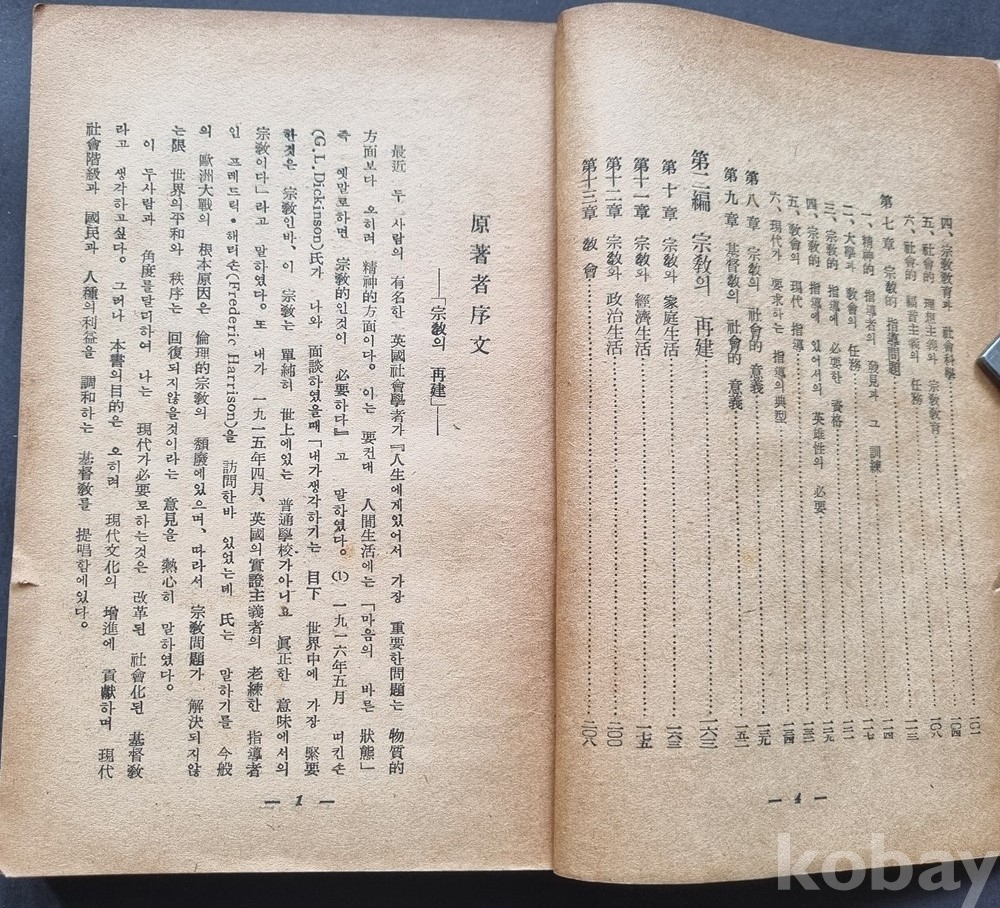 四、宗敎敎育과 社會科學 一〇一
五、社會的 理想主義와 宗敎敎育 一〇四
六、社會的 福音主義의 任務 一〇八
第七章 宗敎的 指導問題 一一三
一、精神的 指導者의 發見과 그 訓練 一一四
二、大學과 敎會의 任務 一一七
三、宗敎的 指導에 必要한 資格
四、宗敎的 指導에 있어서의 英雄性의 必要
五、敎會의 現代 指導
六、現代가 要求하는 指導의 典型
第八章 宗敎의 社會的 意義
第九章 基督敎의 社會的 意義 一五二
第二編 宗敎의 再建 一六三
第十章 宗敎와 家庭生活 一六三
第十一章 宗敎와 經濟生活 一七五
第十二章 宗敎와 政治生活 二〇〇
第十三章 敎會 二〇八
— 4 —
原著者序文
——「宗敎의 再建」——
最近 두 사람의 有名한 英國社會學者가『人生에게있어서 가장 重要한問題는 物質的
方面보다 오히려 精神的方面이다。이는 要컨대 人間生活에는「마음의 바른 狀態」
즉 옛말로하면 宗敎的인것이 必要하다』고 말하였다。(1) 一九一六年五月 띄킨손
(G.L.Dickinson)氏가 나와 面談하였을때「내가생각하기는 目下 世界中에 가장 緊要
한것은 宗敎인바、이 宗敎는 單純히 世上에있는 普通學校가아니요 眞正한 意味에서의
宗敎이다」라고 말하였다。또 내가 一九一五年四月、英國의實證主義者의 老練한 指導者
인 프레드릭•해리손(Frederic Harrison)을 訪問한바 있었는데 氏는 말하기를 今般
의 歐洲大戰의 根本原因은 倫理的宗敎의 頹廢에있으며、따라서 宗敎問題가 解決되지않
는限 世界의平和와 秩序는 回復되지않을것이라는 意見을 熱心히 말하였다。
이 두사람과 角度를달리하여 나는 現代가必要로하는것은 改革된 社會化된 基督敎
라고 생각하고싶다。그러나 本書의目的은 오히려 現代文化의 增進에 貢獻하며 現代
社會階級과 國民과 人種의利益을 調和하는 基督敎를 提唱함에있다。
— 1 —
kobay